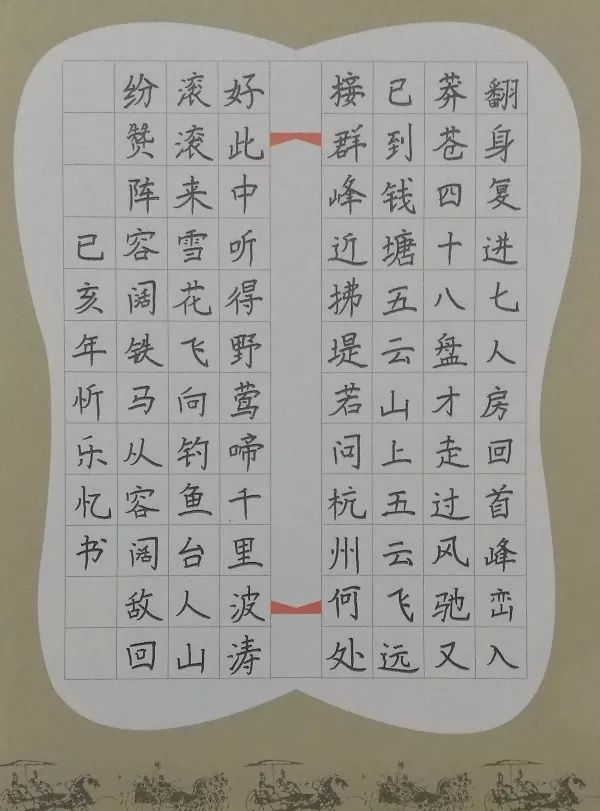 翻身复进七人房回首峰峦入
莽苍四十八盘才走过风驰又
已到钱塘五云山上五云飞远
接群峰近拂堤若问杭州何处
好此中听得野莺啼千里波涛
滚滚来雪花飞向钓鱼台人山
纷赞阵容阔铁马从容阔敌回
已亥年忻乐忆书